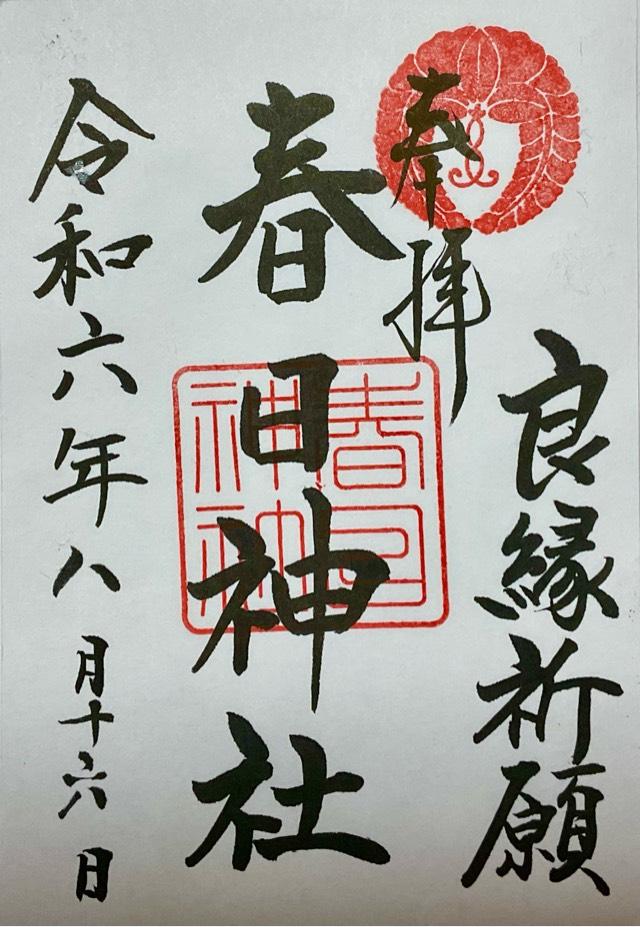 奉拝
良縁祈願
春日神社
春日
神社
令和六年八月十六日